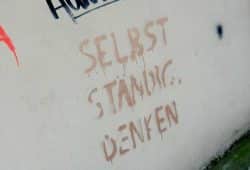 SELBST
STÄNDIG
DENKEN